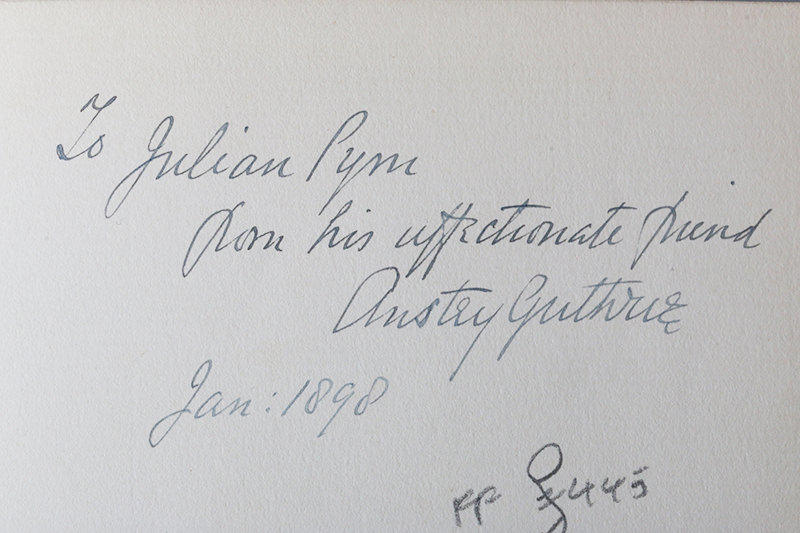 To Julian Pym
from his affectionate friend
Anstey Guthrie
Jan: 1898